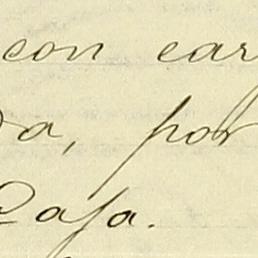 con car
da, por
Casa.